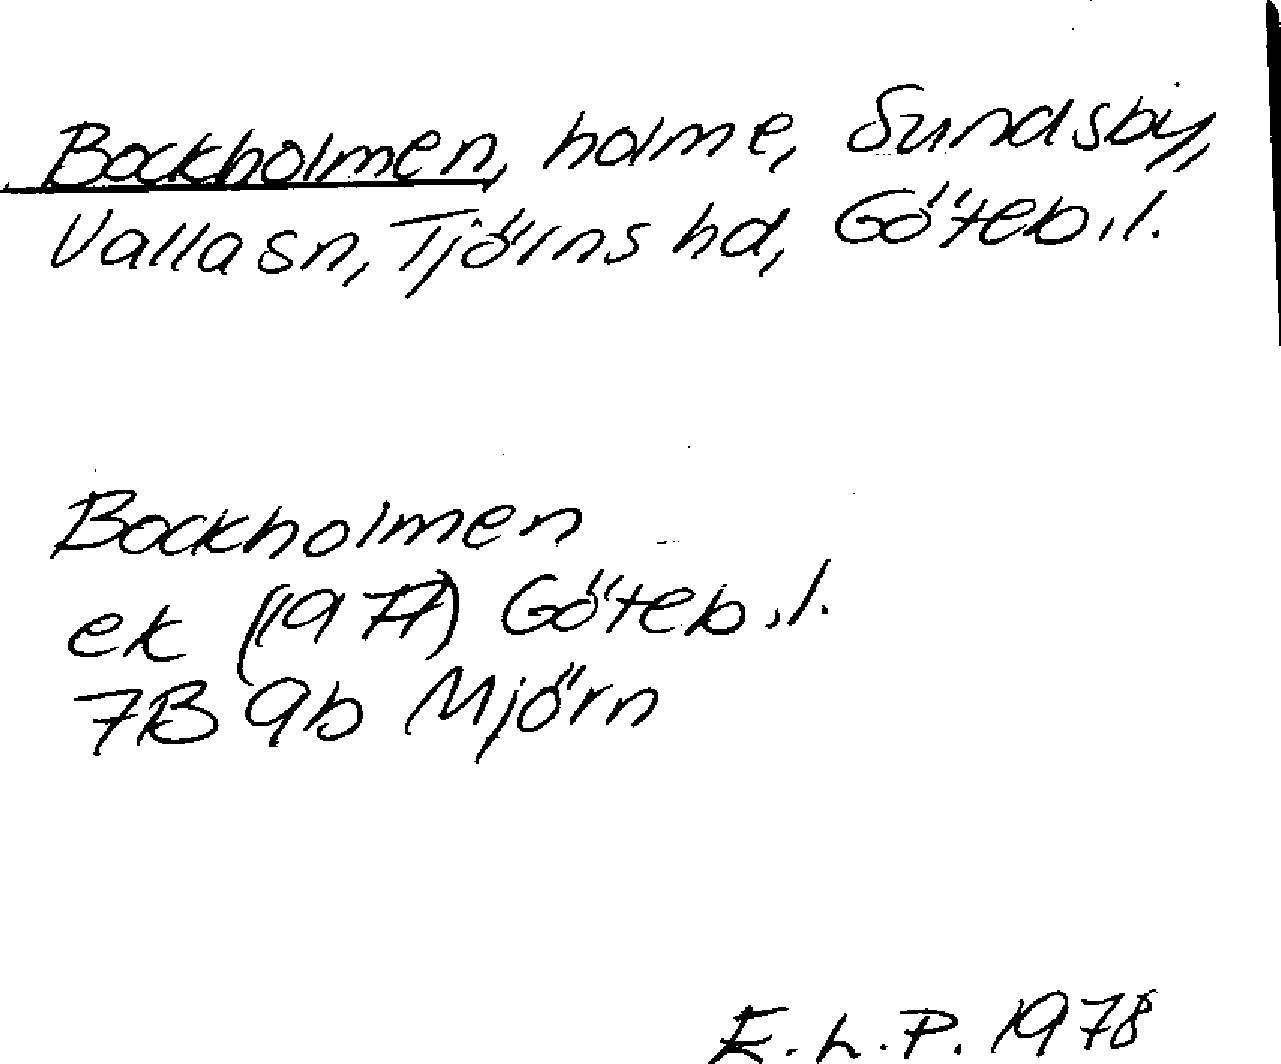 Bockholmen, holme, Sundsby,
Valla sn, Tjörns hd, Göteb.l.
Bockholmen
ek (1977) Göteb.l.
7B 9b Mjörn
E.L.P. 1978